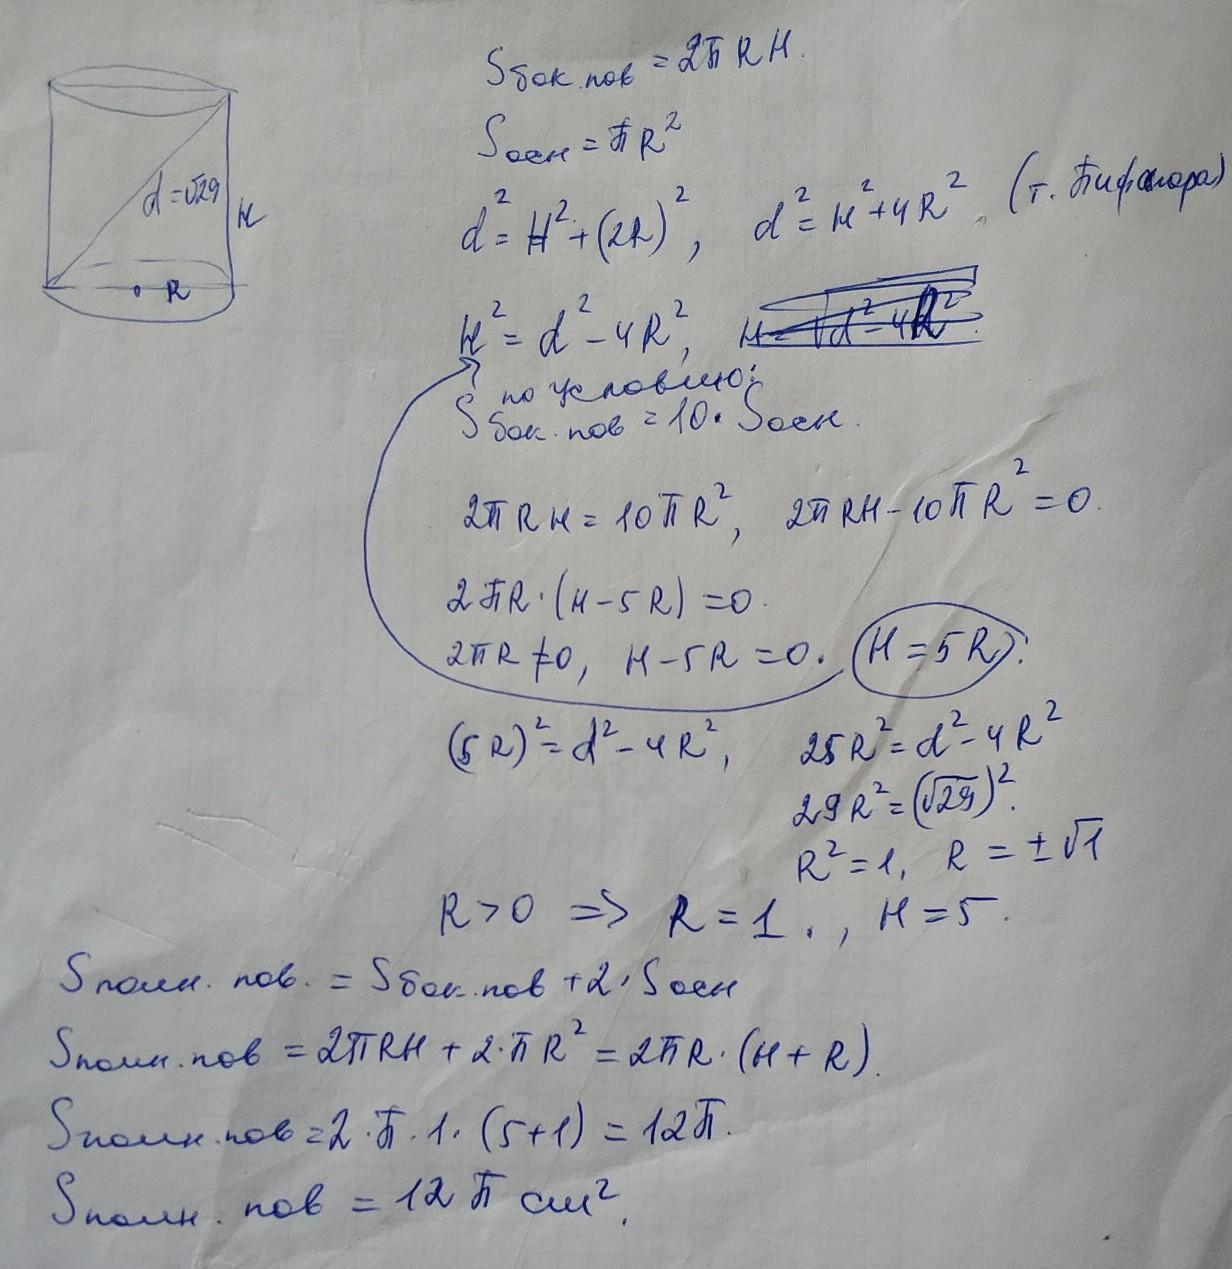 Sбок.пов = 2πRH.
Sосн = πR²
d = √29
H
R
d² = H² + (2R)², d² = H² + 4R². (т. Пифагора)
H² = d² - 4R², H = √d² - 4R²
по условию:
Sбок.пов = 10 · Sосн.
2πRH = 10πR², 2πRH - 10πR² = 0.
2πR · (H - 5R) = 0.
2πR ≠ 0, H - 5R = 0. H = 5R.
(5R)² = d² - 4R², 25R² = d² - 4R²
29R² = (√29)².
R² = 1, R = ±√1
R > 0 => R = 1., H = 5.
Sполн. пов. = Sбок.пов + 2 · Sосн
Sполн.пов = 2πRH + 2·πR² = 2πR · (H + R).
Sполн.пов = 2·π·1·(5+1) = 12π.
Sполн. пов = 12π см².